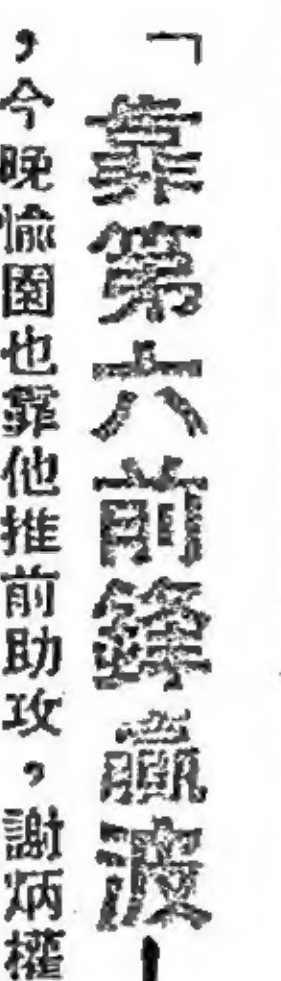 「靠第六前鋒贏波—
，今晚愉園也靠他推前助攻，謝炳權